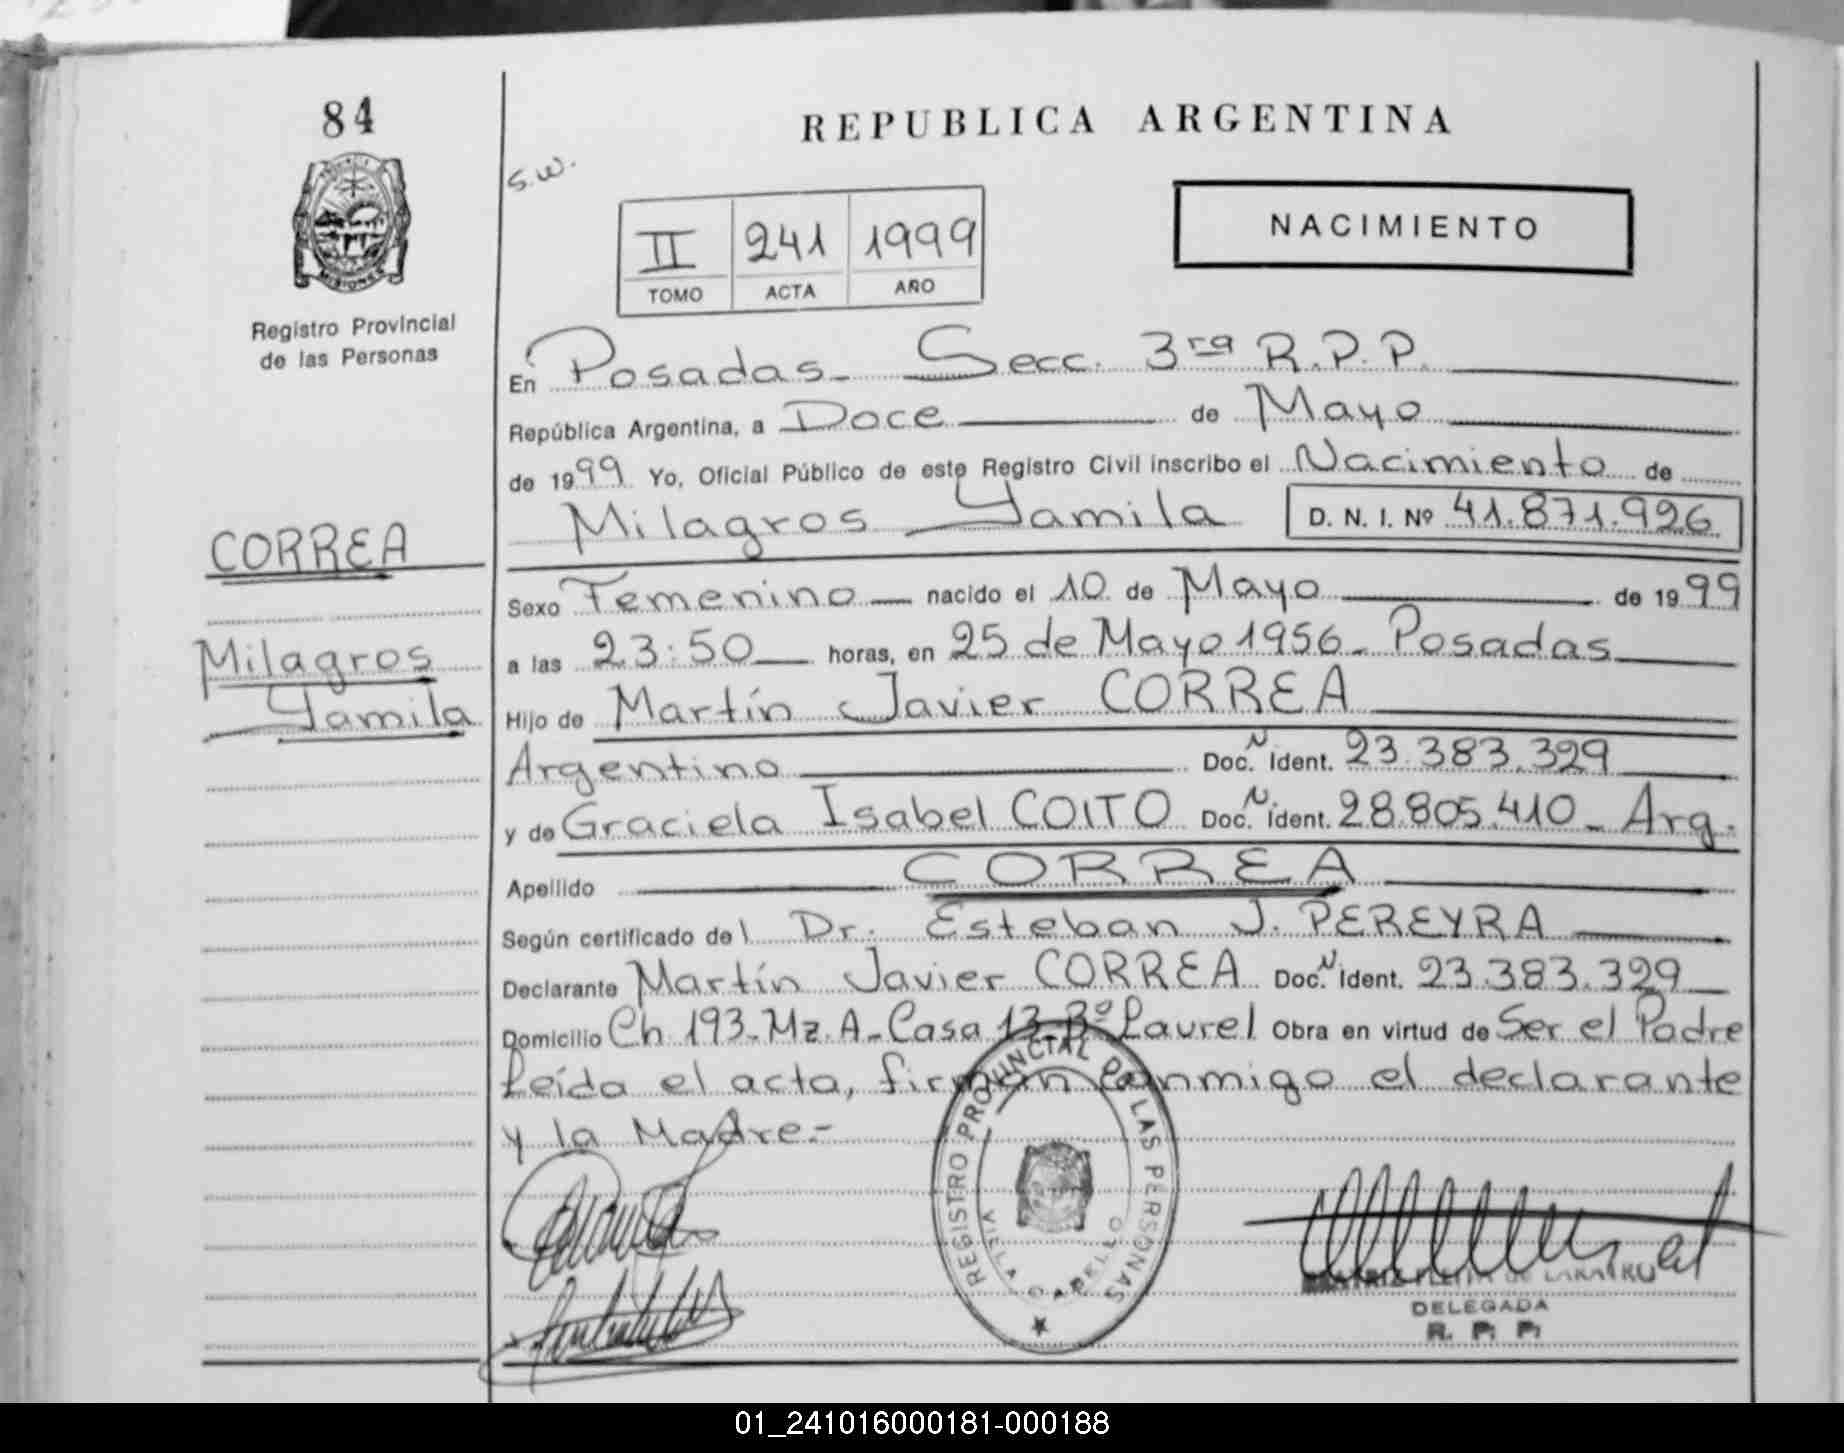 84
REPUBLICA ARGENTINA
S.W.
MISIONES
Registro Provincial
de las Personas
II 241 1999
TOMO ACTA AÑO
NACIMIENTO
En Posadas - Secc. 3ra R.P.P.
República Argentina, a Doce de Mayo
de 1999 Yo, Oficial Público de este Registro Civil inscribo el Nacimiento de
Milagros Yamila D. N. I. Nº 41.871.926
CORREA
Milagros
Yamila
Sexo Femenino nacido el 10 de Mayo de 1999
a las 23:50 horas, en 25 de Mayo 1956 - Posadas
Hijo de Martín Javier CORREA
Argentino Doc. N Ident. 23.383.329
y de Graciela Isabel COITO Doc. N Ident. 28.805.410 - Arg.
Apellido CORREA
Según certificado del Dr. Esteban J. PEREYRA
Declarante Martín Javier CORREA Doc. N Ident. 23.383.329
Domicilio Ch 193 - Mz. A - Casa 13 - Bº Laurel Obra en virtud de Ser el Padre
Leída el acta, firman conmigo el declarante
y la Madre.-
REGISTRO PROVINCIAL DE LAS PERSONAS
VILLA CABELLO
DELEGADA
R. P. P.
01_241016000181-000188